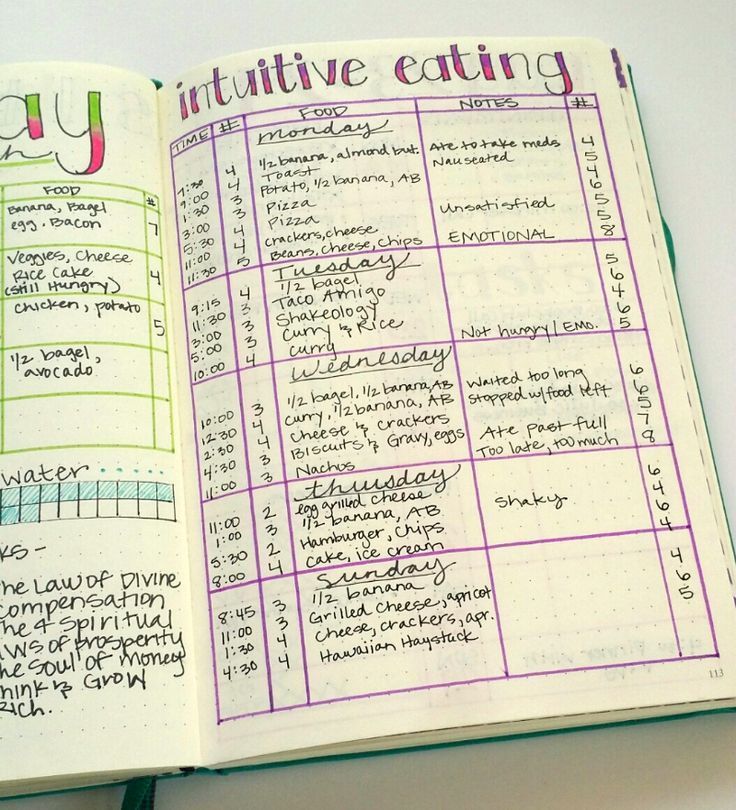 ay
h
FOOD #
Banana, Bagel
egg, Bacon 7
Veggies, Cheese
Rice Cake 4
(still Hungry)
chicken, potato
5
1/2 bagel,
avocado
water
ks -
he Law of Divine
compensation
he 4 Spiritual
aws of Prosperity
he Soul of money
hink & Grow
Rich.
intuitive eating
TIME # FOOD NOTES #
monday
7:30 4 1/2 banana, almond but. Ate to take meds 4
9:00 4 Toast Nauseated 5
1:30 3 Potato, 1/2 banana, AB 4
3:00 3 Pizza 6
5:30 4 Pizza Unsatisfied 5
11:00 4 crackers, cheese 5
11:30 5 Beans, cheese, chips EMOTIONAL 8
Tuesday
9:15 4 1/2 bagel 5
11:30 3 Taco Amigo 6
3:00 3 Shakeology 4
5:00 3 Curry & Rice 6
10:00 4 curry Not hungry/Emo. 5
Wednesday
10:00 3 1/2 bagel, 1/2 banana, AB Waited too long 6
12:30 4 curry, 1/2 banana, AB stopped w/food left 6
2:30 4 Cheese & crackers 5
4:30 3 Biscuits & Gravy, eggs Ate past full 7
11:00 3 Nachos Too late, too much 8
thursday
11:00 2 egg grilled cheese 6
1:00 3 1/2 banana, AB shaky 4
5:30 2 Hamburger, Chips 6
8:00 4 cake, ice cream 4
Sunday
8:45 3 1/2 banana 4
11:00 3 Grilled Cheese, apricot 6
1:30 4 Cheese, crackers, apr. 5
4:30 4 Hawaiian Haystack
113